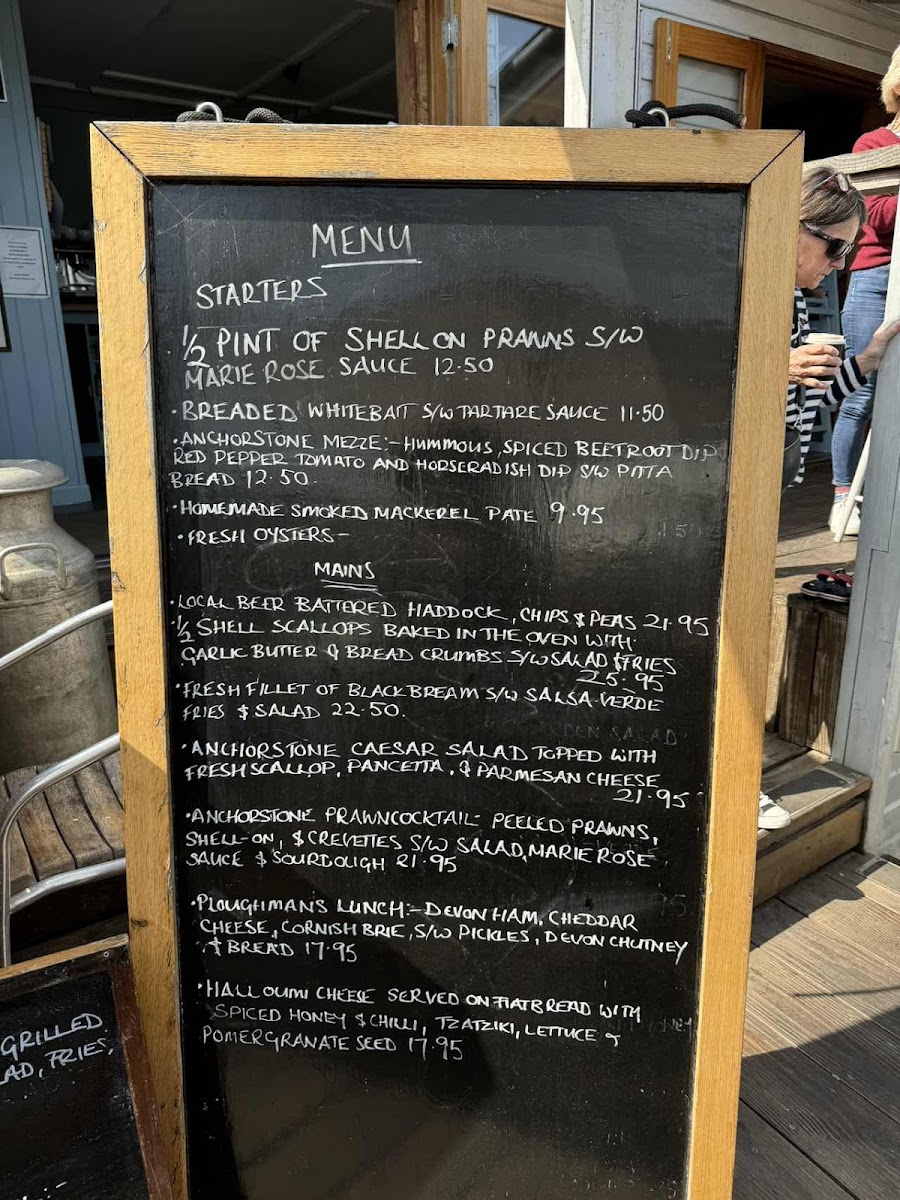 MENU
STARTERS
1/2 PINT OF SHELL ON PRAWNS S/W
MARIE ROSE SAUCE 12.50
· BREADED WHITEBAIT S/W TARTARE SAUCE 11.50
· ANCHORSTONE MEZZE:- HUMMOUS, SPICED BEETROOT DIP
RED PEPPER TOMATO AND HORSERADISH DIP S/W PITTA
BREAD 12.50.
· HOMEMADE SMOKED MACKEREL PATE 9.95
· FRESH OYSTERS-
MAINS
· LOCAL BEER BATTERED HADDOCK, CHIPS & PEAS 21.95
· 1/2 SHELL SCALLOPS BAKED IN THE OVEN WITH
GARLIC BUTTER & BREAD CRUMBS S/W SALAD & FRIES
25.95
· FRESH FILLET OF BLACK BREAM S/W SALSA-VERDE
FRIES & SALAD 22.50.
· ANCHORSTONE CAESAR SALAD TOPPED WITH
FRESH SCALLOP, PANCETTA, & PARMESAN CHEESE
21.95
· ANCHORSTONE PRAWNCOCKTAIL- PEELED PRAWNS,
SHELL-ON, & CREVETTES S/W SALAD, MARIE ROSE
SAUCE & SOURDOUGH 21.95
· PLOUGHMANS LUNCH:- DEVON HAM, CHEDDAR
CHEESE, CORNISH BRIE, S/W PICKLES, DEVON CHUTNEY
& BREAD 17.95
· HALLOUMI CHEESE SERVED ON FLATBREAD WITH
SPICED HONEY & CHILLI, TZATZIKI, LETTUCE &
POMERGRANATE SEED 17.95
GRILLED
AD, FRIES,